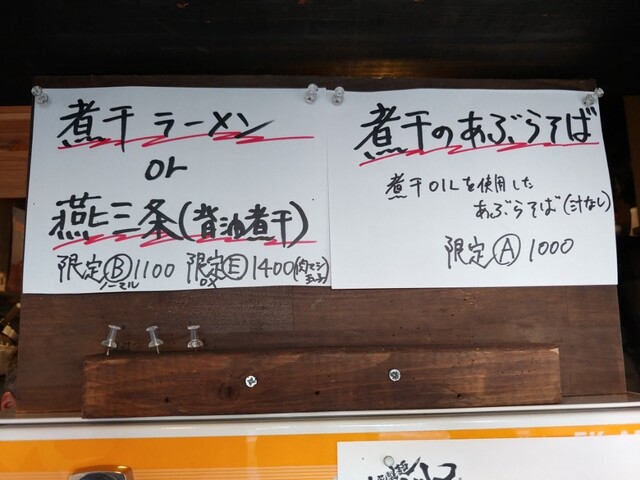 煮干ラーメン
or
燕三条(背油煮干)
限定Ⓑ1100 限定Ⓔ1400(肉マシ
ノーマル DX 玉子)
煮干のあぶらそば
煮干OILを使用した
あぶらそば(汁なし)
限定Ⓐ1000